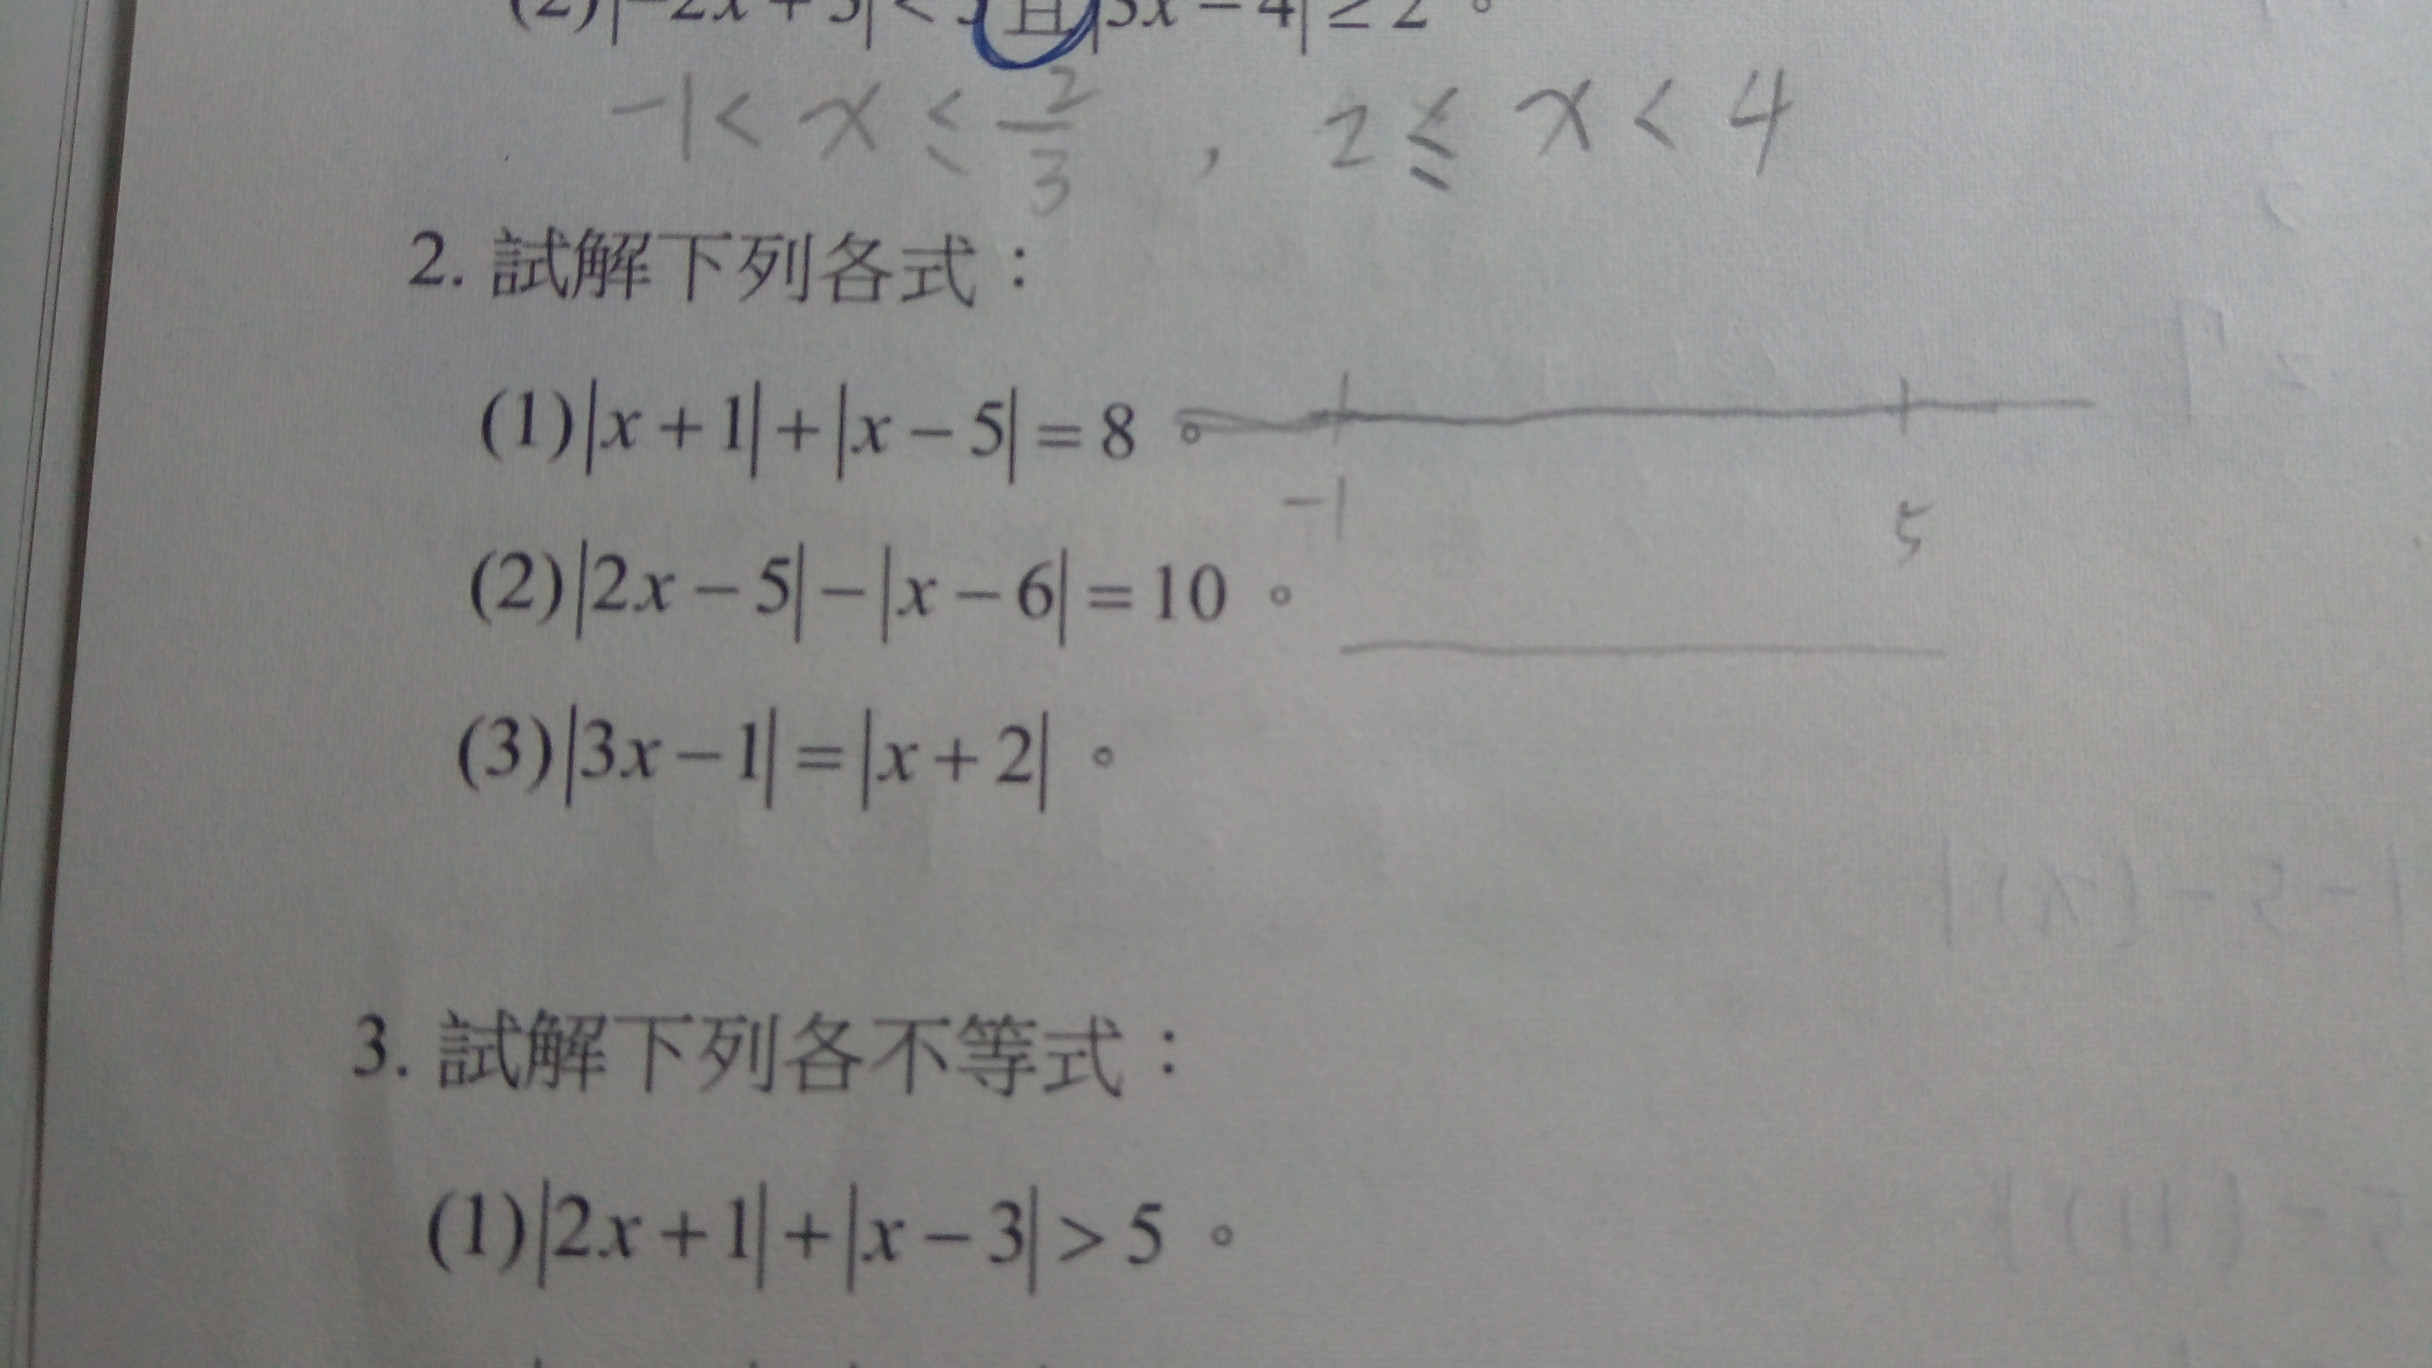 (2)|−2x+5|<5且|3x−4|≥2。
−1<x≤2/3 , 2≤x<4
2. 試解下列各式：
(1)|x+1|+|x−5|=8。
−1 5
(2)|2x−5|−|x−6|=10。
(3)|3x−1|=|x+2|。
3. 試解下列各不等式：
(1)|2x+1|+|x−3|>5。